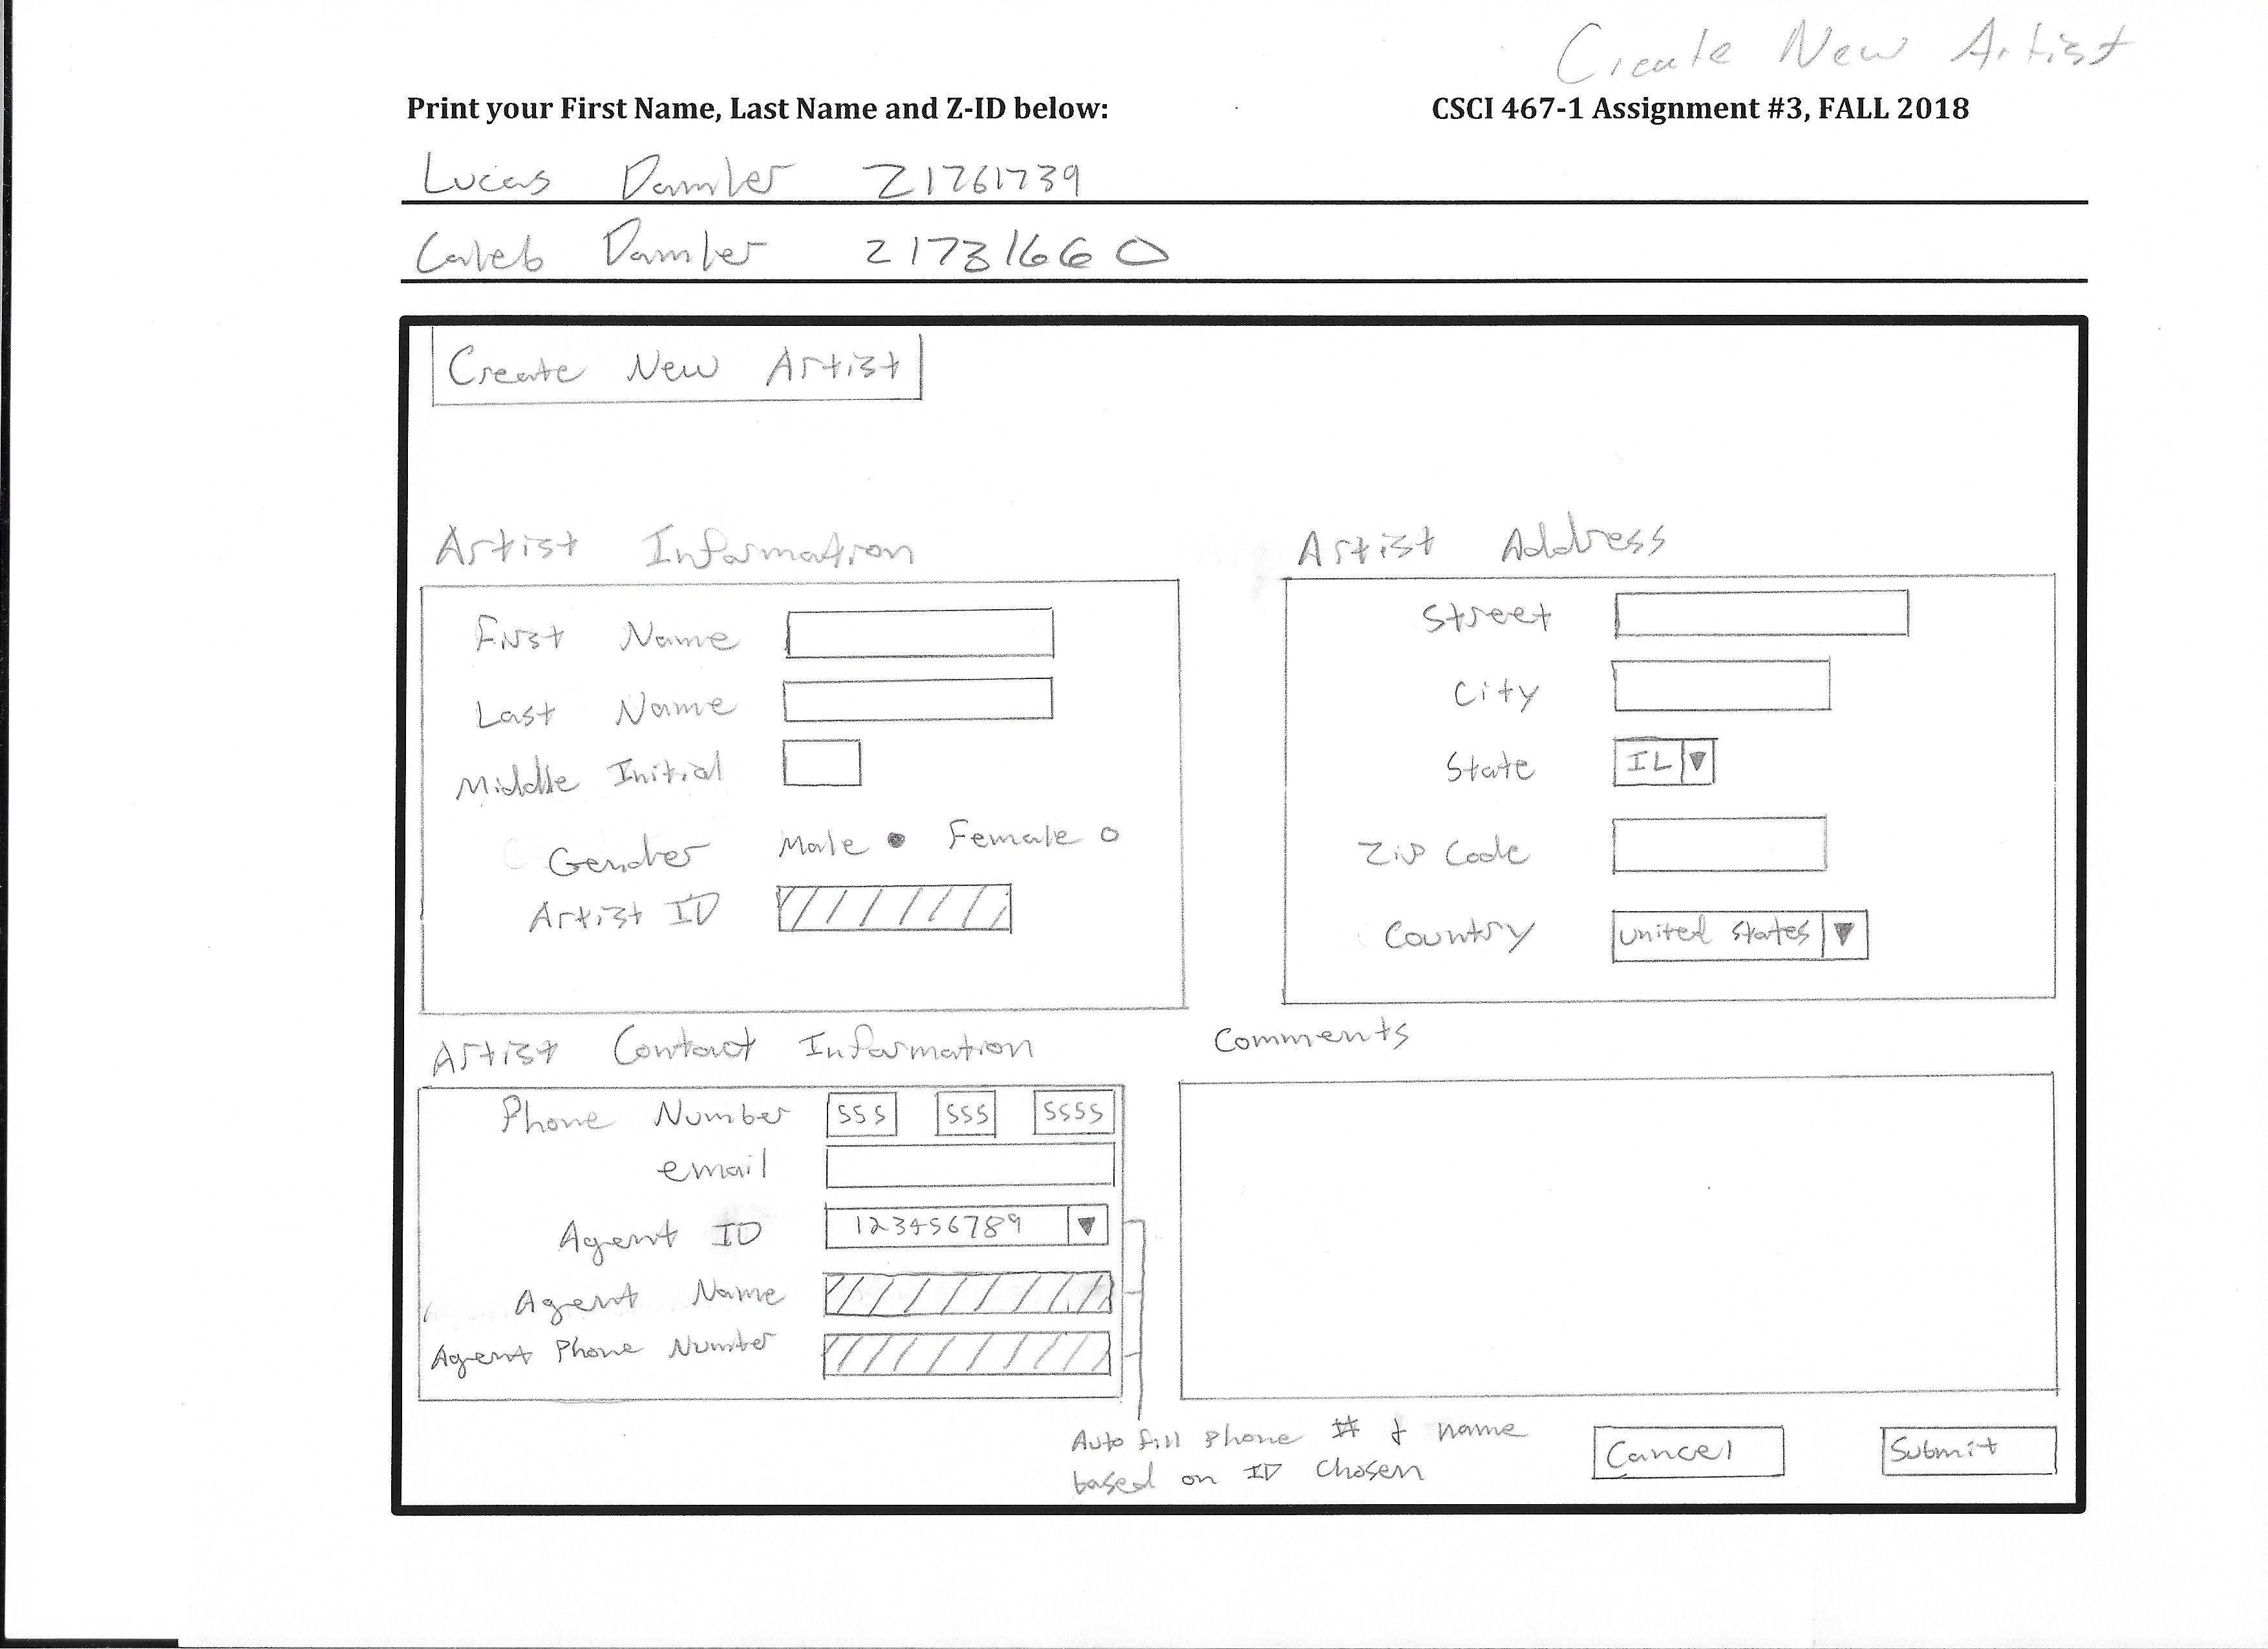 Create New Artist
Print your First Name, Last Name and Z-ID below:
CSCI 467-1 Assignment #3, FALL 2018
Lucas Damler Z1761739
Caleb Damler Z1731660
Create New Artist
Artist Information
First Name
Last Name
Middle Initial
Gender Male Female
Artist ID
Artist Address
Street
City
State IL
Zip Code
Country United States
Artist Contact Information
Phone Number 555 555 5555
email
Agent ID 123456789
Agent Name
Agent Phone Number
Comments
Auto fill phone # & name
based on ID chosen
Cancel
Submit